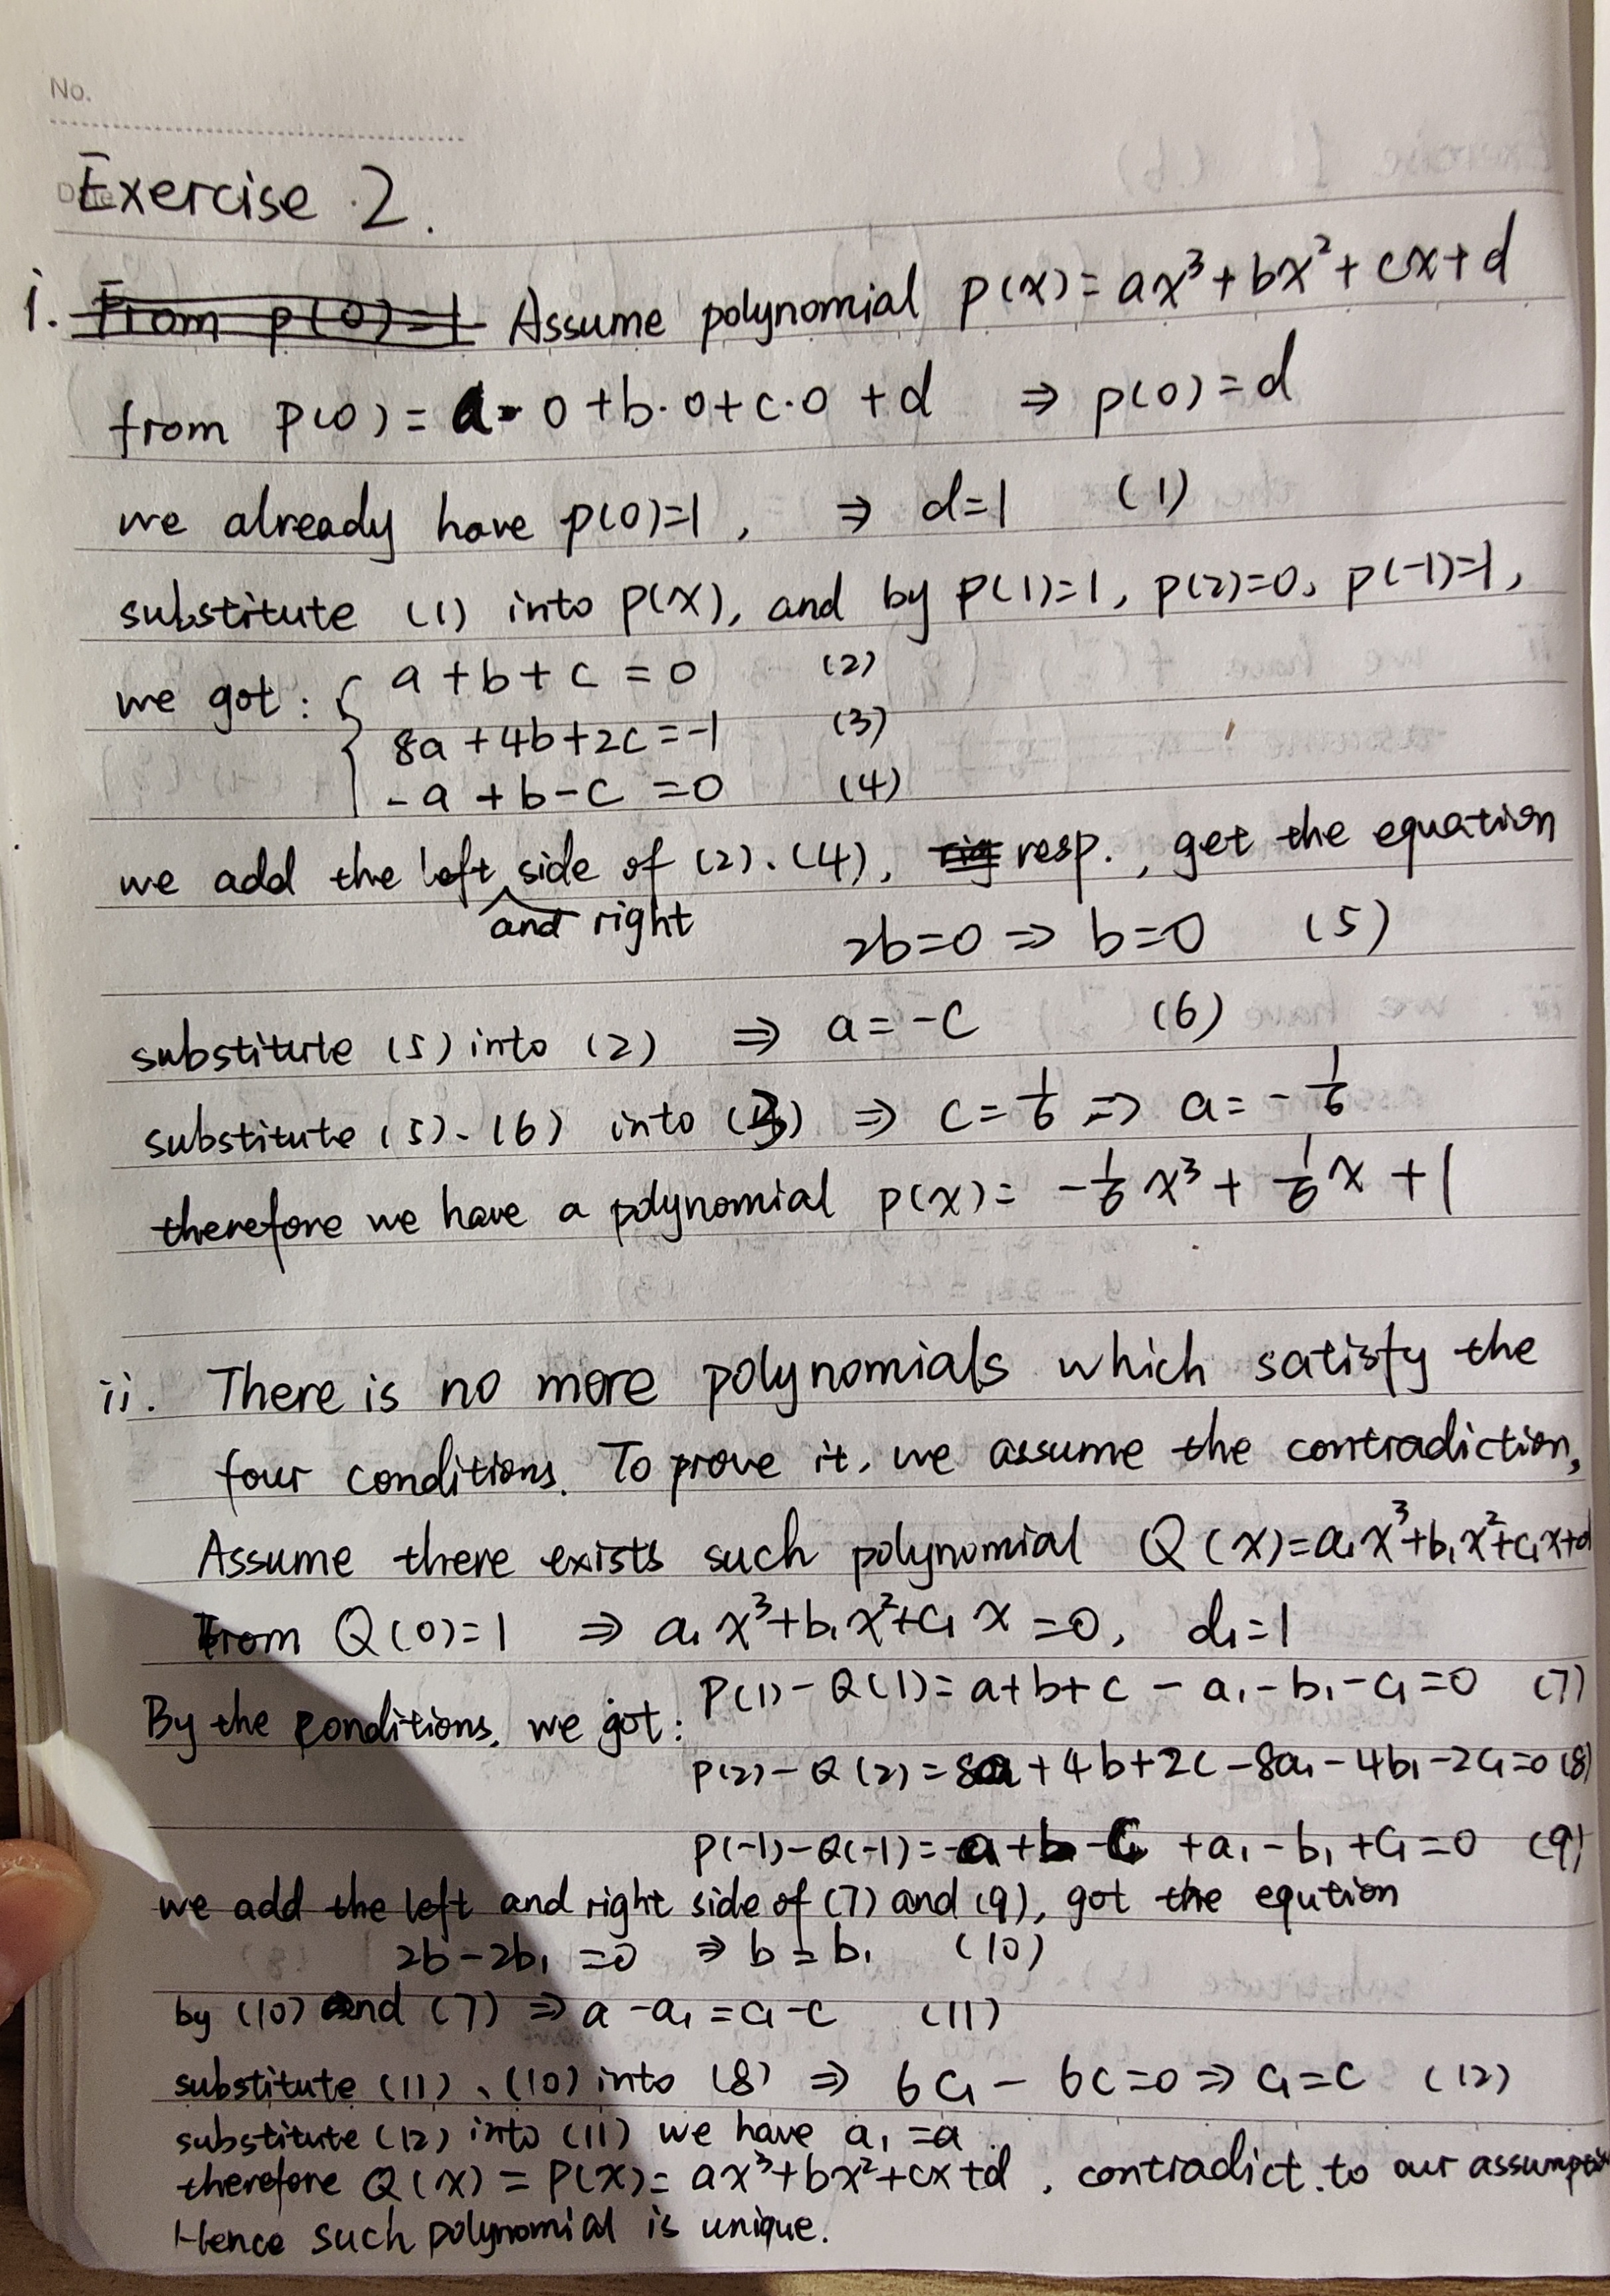 No.
Exercise 2.
i. From p(0)=1 Assume polynomial p(x)=ax³+bx²+cx+d
from p(0)=a·0+b·0+c·0+d ⇒ p(0)=d
we already have p(0)=1, ⇒ d=1 (1)
substitute (1) into p(x), and by p(1)=1, p(2)=0, p(-1)=1,
we got: { a+b+c=0 (2)
8a+4b+2c=-1 (3)
-a+b-c=0 (4)
we add the left and right side of (2)、(4), rig resp., get the equation
2b=0 ⇒ b=0 (5)
substitute (5) into (2) ⇒ a=-c (6)
substitute (5)、(6) into (3) ⇒ c=1/6 ⇒ a=-1/6
therefore we have a polynomial p(x)= -1/6 x³ + 1/6 x + 1
ii. There is no more polynomials which satisfy the
four conditions. To prove it, we assume the contradiction,
Assume there exists such polynomial Q(x)=a₁x³+b₁x²+c₁x+d
From Q(0)=1 ⇒ a₁x³+b₁x²+c₁x=0, d₁=1
By the conditions, we got: P(1)-Q(1)=a+b+c-a₁-b₁-c₁=0 (7)
P(2)-Q(2)=8a+4b+2c-8a₁-4b₁-2c₁=0 (8)
P(-1)-Q(-1)=-a+b-c+a₁-b₁+c₁=0 (9)
we add the left and right side of (7) and (9), got the eqution
2b-2b₁=0 ⇒ b=b₁ (10)
by (10) and (7) ⇒ a-a₁=c₁-c (11)
substitute (11)、(10) into (8) ⇒ 6c₁-6c=0 ⇒ c₁=c (12)
substitute (12) into (11) we have a₁=a.
therefore Q(x)=P(x)=ax³+bx²+cx+d, contradict to our
Hence such polynomial is unique.